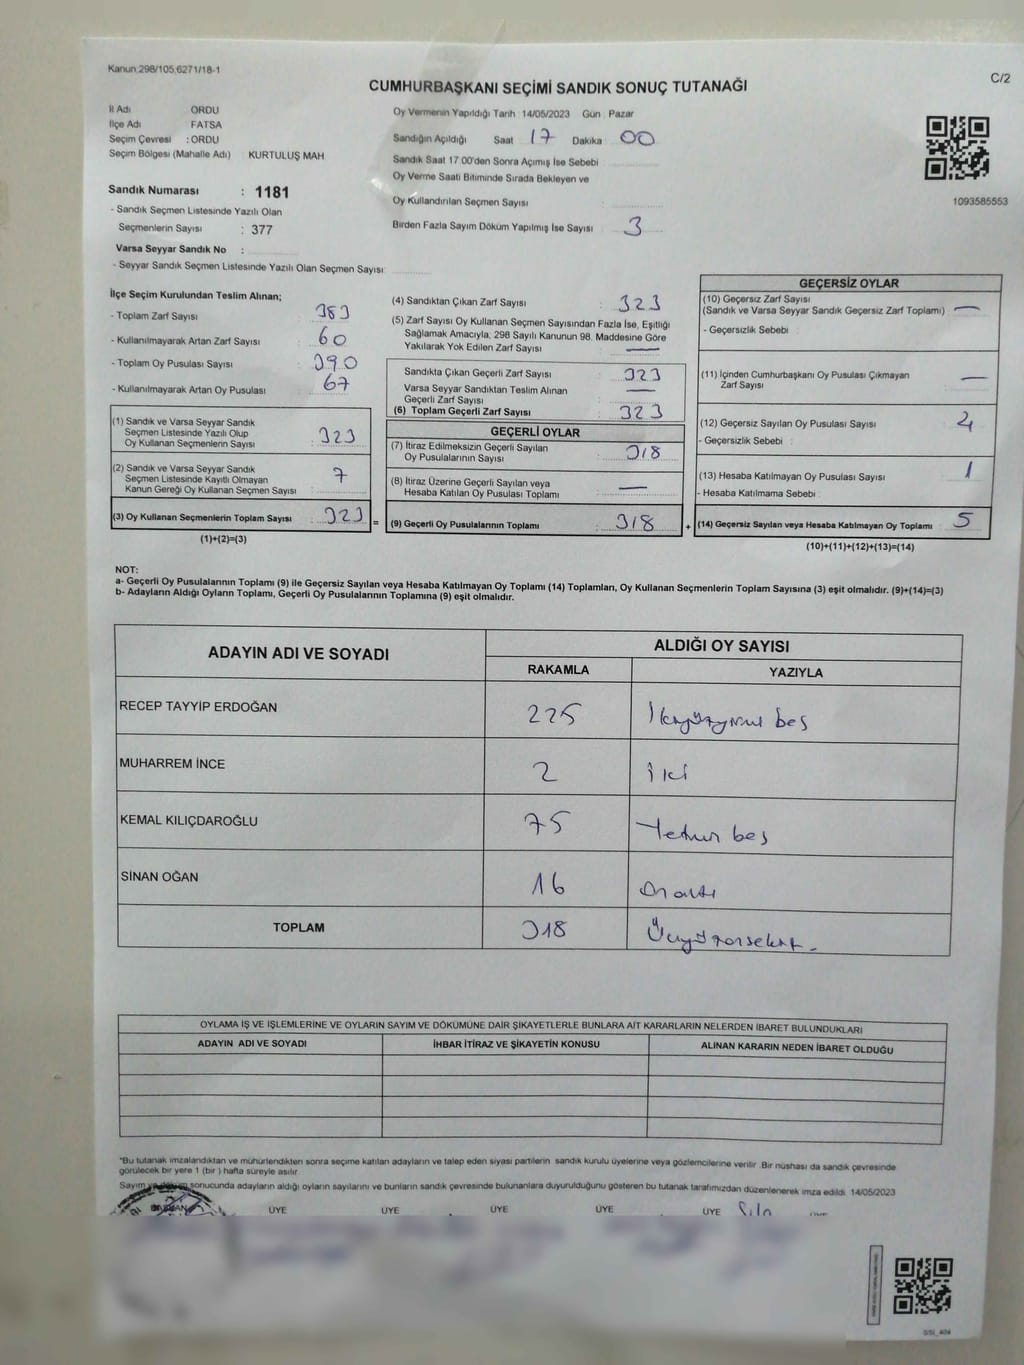 Kanun:298/105,6271/18-1
C/2
CUMHURBAŞKANI SEÇİMİ SANDIK SONUÇ TUTANAĞI
İl Adı : ORDU
İlçe Adı : FATSA
Seçim Çevresi : ORDU
Seçim Bölgesi (Mahalle Adı) : KURTULUŞ MAH
Sandık Numarası : 1181
- Sandık Seçmen Listesinde Yazılı Olan
Seçmenlerin Sayısı : 377
Varsa Seyyar Sandık No :
- Seyyar Sandık Seçmen Listesinde Yazılı Olan Seçmen Sayısı:
Oy Vermenin Yapıldığı Tarih 14/05/2023 Gün : Pazar
Sandığın Açıldığı Saat 17 Dakika 00
Sandık Saat 17:00'den Sonra Açımış İse Sebebi
Oy Verme Saati Bitiminde Sırada Bekleyen ve
Oy Kullandırılan Seçmen Sayısı :
Birden Fazla Sayım Döküm Yapılmış İse Sayısı : 3
1093585553
İlçe Seçim Kurulundan Teslim Alınan;
- Toplam Zarf Sayısı : 383
- Kullanılmayarak Artan Zarf Sayısı : 60
- Toplam Oy Pusulası Sayısı : 390
- Kullanılmayarak Artan Oy Pusulası : 67
(1) Sandık ve Varsa Seyyar Sandık
Seçmen Listesinde Yazılı Olup
Oy Kullanan Seçmenlerin Sayısı : 323
(2) Sandık ve Varsa Seyyar Sandık
Seçmen Listesinde Kayıtlı Olmayan
Kanun Gereği Oy Kullanan Seçmen Sayısı : 7
(3) Oy Kullanan Seçmenlerin Toplam Sayısı : 323 =
(1)+(2)=(3)
(4) Sandıktan Çıkan Zarf Sayısı : 323
(5) Zarf Sayısı Oy Kullanan Seçmen Sayısından Fazla İse, Eşitliği
Sağlamak Amacıyla, 298 Sayılı Kanunun 98. Maddesine Göre
Yakılarak Yok Edilen Zarf Sayısı : —
Sandıkta Çıkan Geçerli Zarf Sayısı : 323
Varsa Seyyar Sandıktan Teslim Alınan
Geçerli Zarf Sayısı : —
(6) Toplam Geçerli Zarf Sayısı : 323
GEÇERLİ OYLAR
(7) İtiraz Edilmeksizin Geçerli Sayılan
Oy Pusulalarının Sayısı : 318
(8) İtiraz Üzerine Geçerli Sayılan veya
Hesaba Katılan Oy Pusulası Toplamı : —
(9) Geçerli Oy Pusulalarının Toplamı : 318 +
GEÇERSİZ OYLAR
(10) Geçersiz Zarf Sayısı
(Sandık ve Varsa Seyyar Sandık Geçersiz Zarf Toplamı) : —
- Geçersizlik Sebebi :
(11) İçinden Cumhurbaşkanı Oy Pusulası Çıkmayan
Zarf Sayısı : —
(12) Geçersiz Sayılan Oy Pusulası Sayısı : 4
- Geçersizlik Sebebi :
(13) Hesaba Katılmayan Oy Pusulası Sayısı : 1
- Hesaba Katılmama Sebebi :
(14) Geçersiz Sayılan veya Hesaba Katılmayan Oy Toplamı : 5
(10)+(11)+(12)+(13)=(14)
NOT:
a- Geçerli Oy Pusulalarının Toplamı (9) ile Geçersiz Sayılan veya Hesaba Katılmayan Oy Toplamı (14) Toplamları, Oy Kullanan Seçmenlerin Toplam Sayısına (3) eşit olmalıdır. (9)+(14)=(3)
b- Adayların Aldığı Oyların Toplamı, Geçerli Oy Pusulalarının Toplamına (9) eşit olmalıdır.
ADAYIN ADI VE SOYADI
ALDIĞI OY SAYISI
RAKAMLA YAZIYLA
RECEP TAYYİP ERDOĞAN 225 İkiyüzyirmi beş
MUHARREM İNCE 2 iki
KEMAL KILIÇDAROĞLU 75 Yetmiş beş
SİNAN OĞAN 16 Onaltı
TOPLAM 318 Üçyüzonsekiz
OYLAMA İŞ VE İŞLEMLERİNE VE OYLARIN SAYIM VE DÖKÜMÜNE DAİR ŞİKAYETLERLE BUNLARA AİT KARARLARIN NELERDEN İBARET BULUNDUKLARI
ADAYIN ADI VE SOYADI İHBAR İTİRAZ VE ŞİKAYETİN KONUSU ALINAN KARARIN NEDEN İBARET OLDUĞU
*Bu tutanak imzalandıktan ve mühürlendikten sonra seçime katılan adayların ve talep eden siyasi partilerin sandık kurulu üyelerine veya gözlemcilerine verilir .Bir nüshası da sandık çevresinde
görülecek bir yere 1 (bir ) hafta süreyle asılır
Sayım ve döküm sonucunda adayların aldığı oyların sayılarını ve bunların sandık çevresinde bulunanlara duyurulduğunu gösteren bu tutanak tarafımızdan düzenlenerek imza edildi. 14/05/2023
BAŞKAN ÜYE ÜYE ÜYE ÜYE ÜYE Sıla